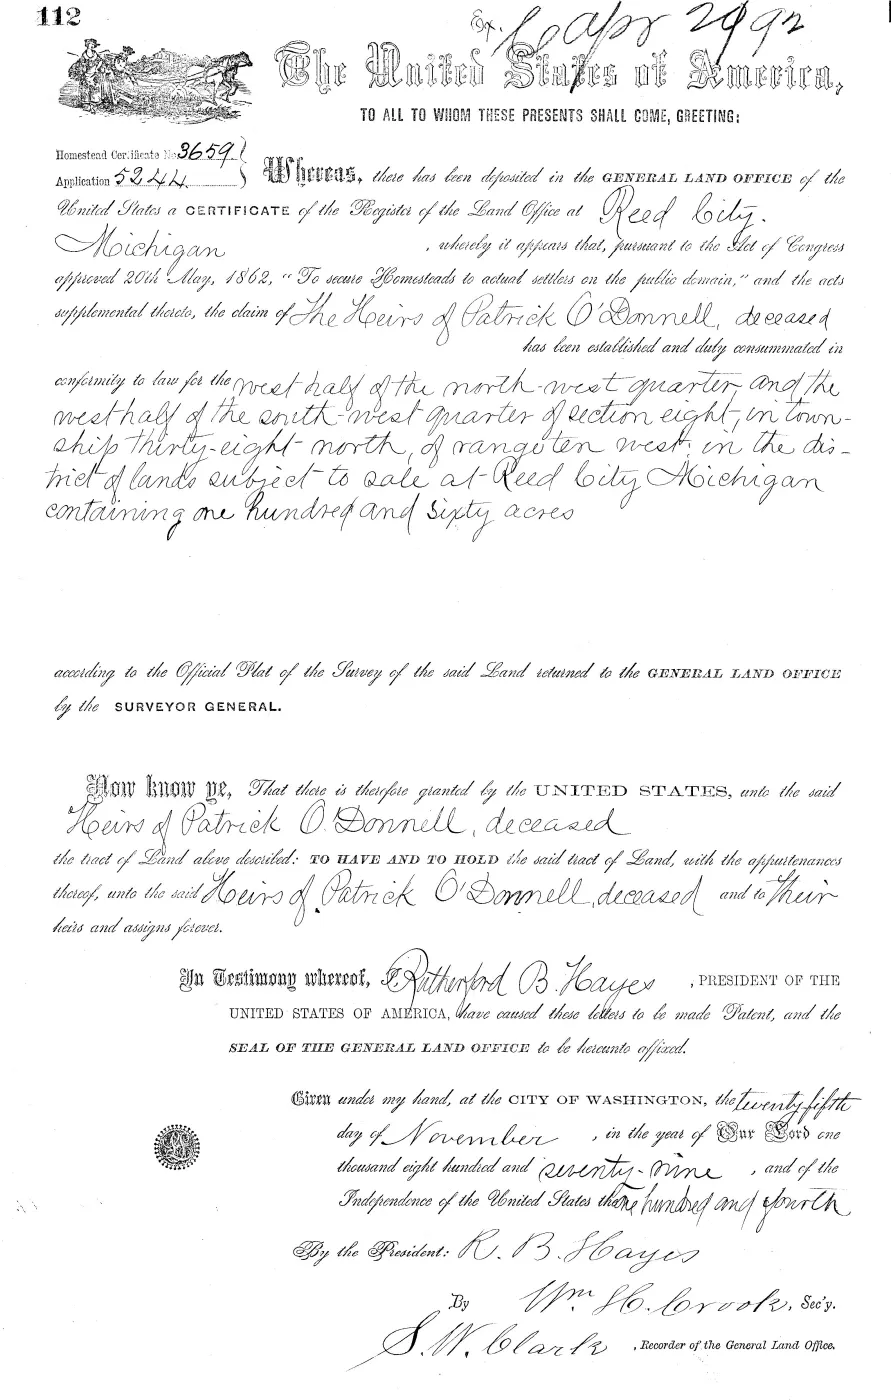 112
Ex. C Apr 29 92
The United States of America,
TO ALL TO WHOM THESE PRESENTS SHALL COME, GREETING:
Homestead Certificate No 3659
Application 5244
Whereas, there has been deposited in the GENERAL LAND OFFICE of the
United States a CERTIFICATE of the Register of the Land Office at Reed City.
Michigan , whereby it appears that, pursuant to the Act of Congress
approved 20th May, 1862, "To secure Homesteads to actual settlers on the public domain," and the acts
supplemental thereto, the claim of The Heirs of Patrick O'Donnell, deceased
has been established and duly consummated in
conformity to law for the west half of the north-west quarter and the
west half of the south-west quarter of section eight, in town-
ship thirty-eight north, of range ten west in the dis-
trict of lands subject to sale at Reed City Michigan
containing one hundred and sixty acres
according to the Official Plat of the Survey of the said Land returned to the GENERAL LAND OFFICE
by the SURVEYOR GENERAL.
Now know ye, That there is therefore granted by the UNITED STATES, unto the said
Heirs of Patrick O'Donnell, deceased
the tract of Land above described: TO HAVE AND TO HOLD the said tract of Land, with the appurtenances
thereof, unto the said Heirs of Patrick O'Donnell, deceased and to their
heirs and assigns forever.
In Testimony whereof, I Rutherford B. Hayes , PRESIDENT OF THE
UNITED STATES OF AMERICA, have caused these letters to be made Patent, and the
SEAL OF THE GENERAL LAND OFFICE to be hereunto affixed.
Given under my hand, at the CITY OF WASHINGTON, the twenty fifth
day of November , in the year of Our Lord one
thousand eight hundred and seventy-nine , and of the
Independence of the United States the one hundred and fourth
By the President: R. B. Hayes
By Wm. H. Crook, Sec'y.
S. W. Clark , Recorder of the General Land Office.